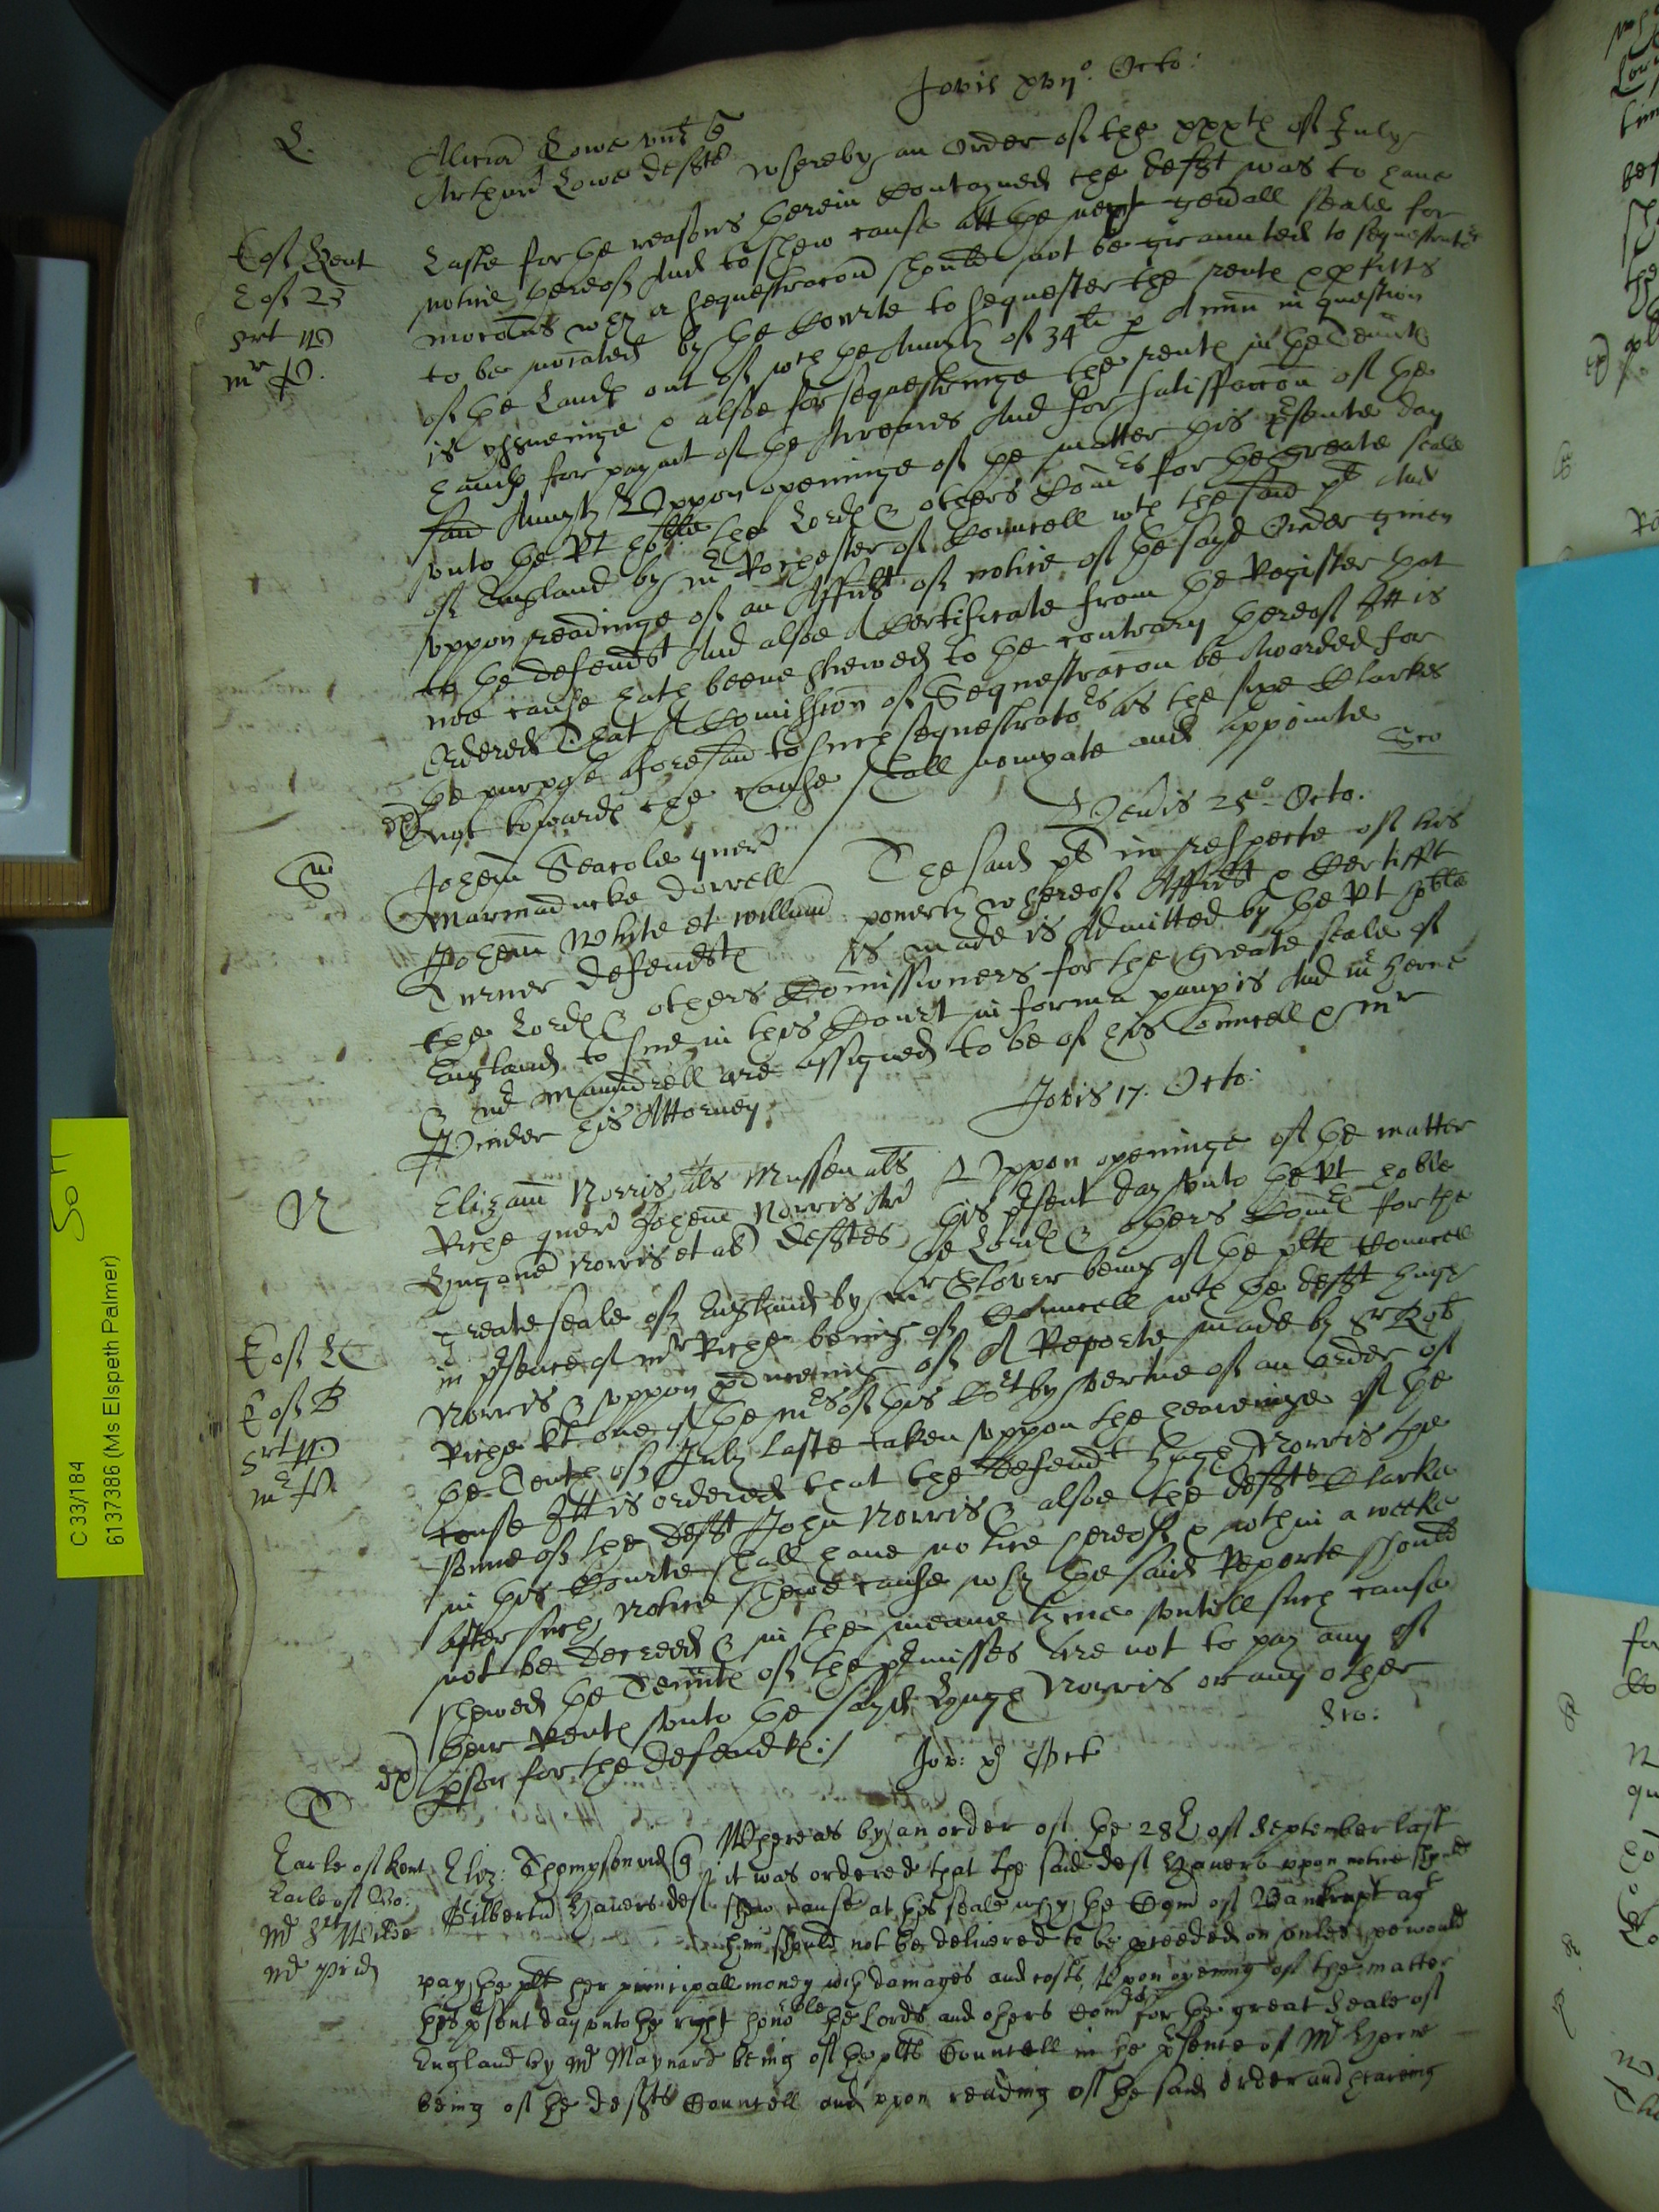 Jovis xvijo. Octo:
L.
Alicia Lowe vid q
Arthurus Lowe defte
Whereby an Order of the xxxth of July
E of Kent
E of
Srt W
Mr P.
Laste for the reasons therein Contayned the deft was to have
notice thereof And to shew cause att the next gen'all seale for
mocions why a sequestracon should not be graunted to sequestrators
to be no'iated by the Courte to sequester the rente & p'fitts
of the Lands out of wch the Annuity of 34li p Annu in question
is yssueinge & alsoe for sequestringe the rente in the Ten'nts
hands for paymt of the Arreares And for satisfaccon of the
said Annuity Uppon openinge of the matter this p'sente day
unto the Rt hoble the Lords & others Com'rs for the greate seale
of England by Mr Rochester of Councell wth the said plt And
uppon readinge of an Affidt of notice of the sayd Order given
to the defendt And alsoe A Certificate from the Register that
noe cause hath beene shewed to the contrary thereof Itt is
Ordered That A Comission of Sequestracon be Awarded for
the purpose aforesaid to such sequestrators as the sixe Clarkes
not towards the cause shall nominate and appointe
Ven'is 25o. Octo.
Johem Searole quer
Marmaducke Dorrell
Johem White et Willum
Turner defendte
The said plt in respecte of his
poverty whereof Affidt & Certifft
is made is Admitted by the Rt hoble
the Lords & others Comissioners for the greate seale of
England to sue in this Court in forma paupis And Mr Herne
& Mr Maundrell are assigned to be of his Councell & Mr
Pinder his Attorney
Jovis 17. Octo:
N
Elizam Norris als Mussen als
Riche quer Johem Norris Ar
Hugonem Norris et al deftes
Uppon openinge of the matter
this p'sent day unto the Rt hoble
the Lords & others Comrs for the
E of Kt
E of B
Srt W
Mr P.
greate seale of England by Mr Glover being of the plts Councell
in p'sence of Mr Riche being of Councell wth the deft Hugh
Norris & uppon p'duceing of A Reporte made by Sr Rob
Riche kt one of the Mrs of this Cot by vertue of an order of
the Tenth of July laste taken uppon the heareinge of the
cause Itt is ordered that the defendt Hugh Norris the
sonne of the deft John Norris & alsoe the defts Clarke
in this Courte shall have notice thereof & wthin a weeke
after such notice shewe cause why the said Reporte should
not be decreed & in the meane tyme untill such cause
shewed the Ten'nts of the p'misses are not to pay any of
their Rente unto the sayd Hugh Norris or any other
p'son for the defendte:/
Jov: xj Oct
T
Earle of Kent
Earle of Bo:
Mr Srt Wilde
Mr Prid
Eliz: Thompson vid q
Gilbertu Havers def
Whereas by an order of the 28th of September last
it was ordered that the said def Havers upon notice should
shew cause at this seale why the Com of Bankrupt agt
him should not be delivered to be p'ceeded on unles he would
pay the plt her principall money wth damages and costs, Upon opening of the matter
this p'sent day unto the right honoble the Lords and others Comrs for the great Seale of
England by Mr Maynard being of the plts Councell in the p'sence of Mr Herne
being of the defts Councell and upon reading of the said order and hearing
C 33/184
6137386 (Ms Elspeth Palmer)